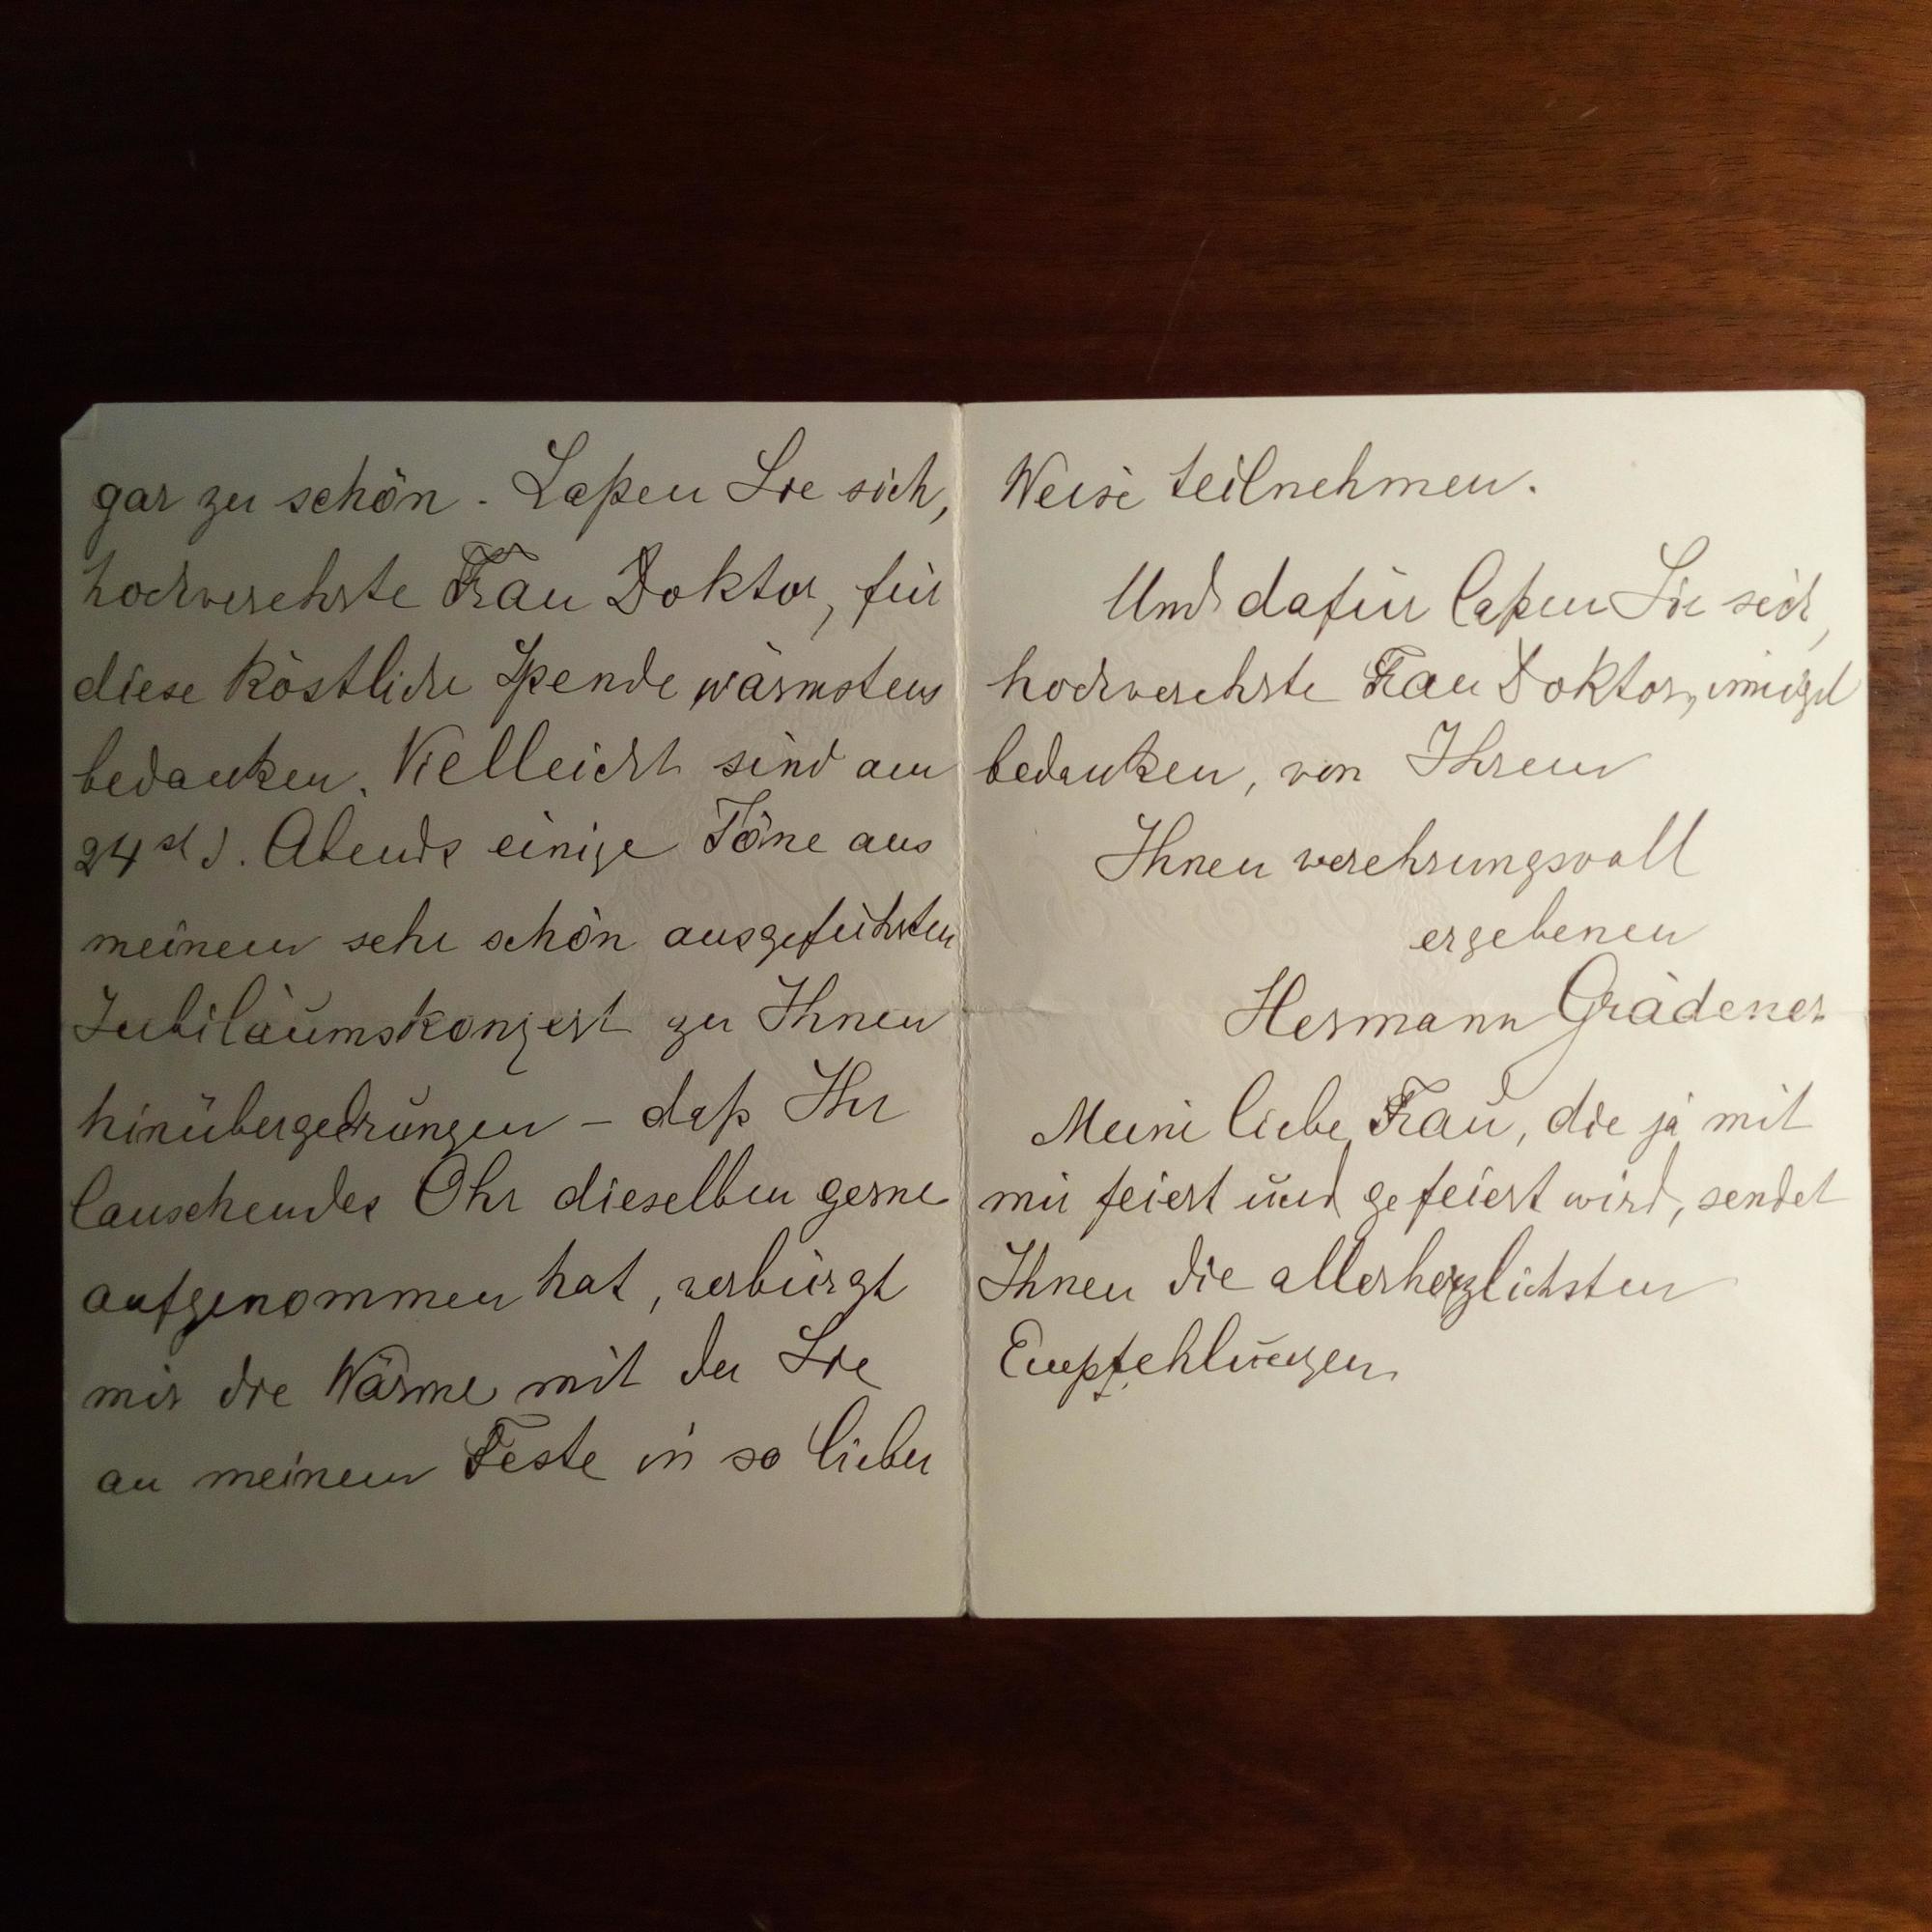 gar zu schön. Laßen Sie sich,
hochverehrte Frau Doktor, für
diese köstliche Spende wärmstens
bedanken. Vielleicht sind am
24st d. Abends einige Töne aus
meinem sehr schön ausgeführten
Jubiläumskonzert zu Ihnen
hinübergedrungen – daß Ihr
lauschendes Ohr dieselben gerne
aufgenommen hat, verbürgt
mir die Wärme mit der Sie
an meinem Feste in so lieber
Weise teilnehmen.
Und dafür laßen Sie sich,
hochverehrte Frau Doktor, innigst
bedanken, von Ihrem
Ihnen verehrungsvoll
ergebenen
Hermann Grädener
Meine liebe Frau, die ja mit
mir feiert und gefeiert wird, sendet
Ihnen die allerherzlichsten
Empfehlungen